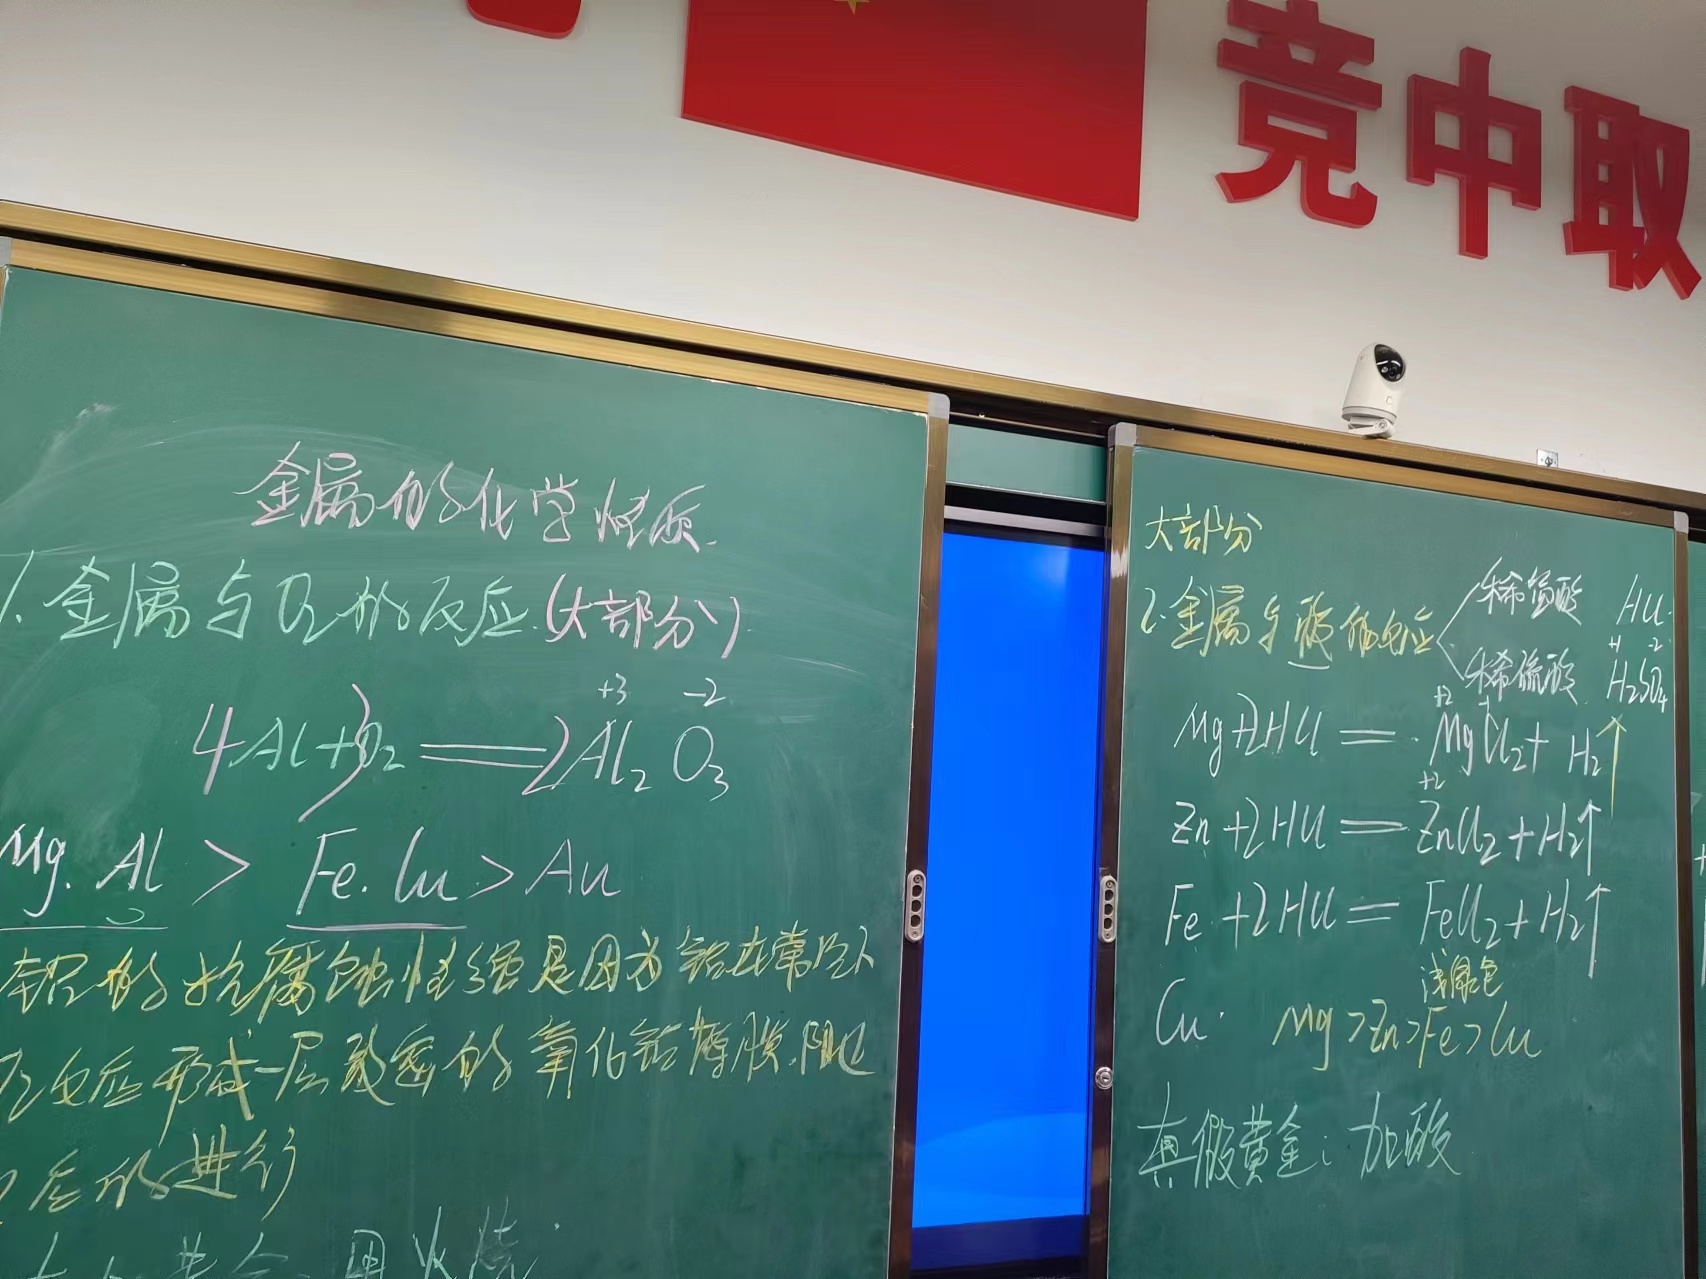 竞中取
金属的化学性质.
1.金属与O₂的反应.(大部分).
+3 -2
4Al+3O₂══2Al₂O₃
Mg. Al > Fe. Cu > Au
铝的抗腐蚀性强是因为铝在常温下
反应形成一层致密的氧化铝薄膜.阻止
反应的进行
用火烧.
大部分
2.金属与酸的反应
稀盐酸 HCl.
+1 -2
稀硫酸 H₂SO₄
+2
Mg+2HCl = MgCl₂+H₂↑
+2
Zn+2HCl = ZnCl₂+H₂↑
Fe+2HCl = FeCl₂+H₂↑
浅绿色
Cu. Mg>Zn>Fe>Cu
真假黄金: 加酸